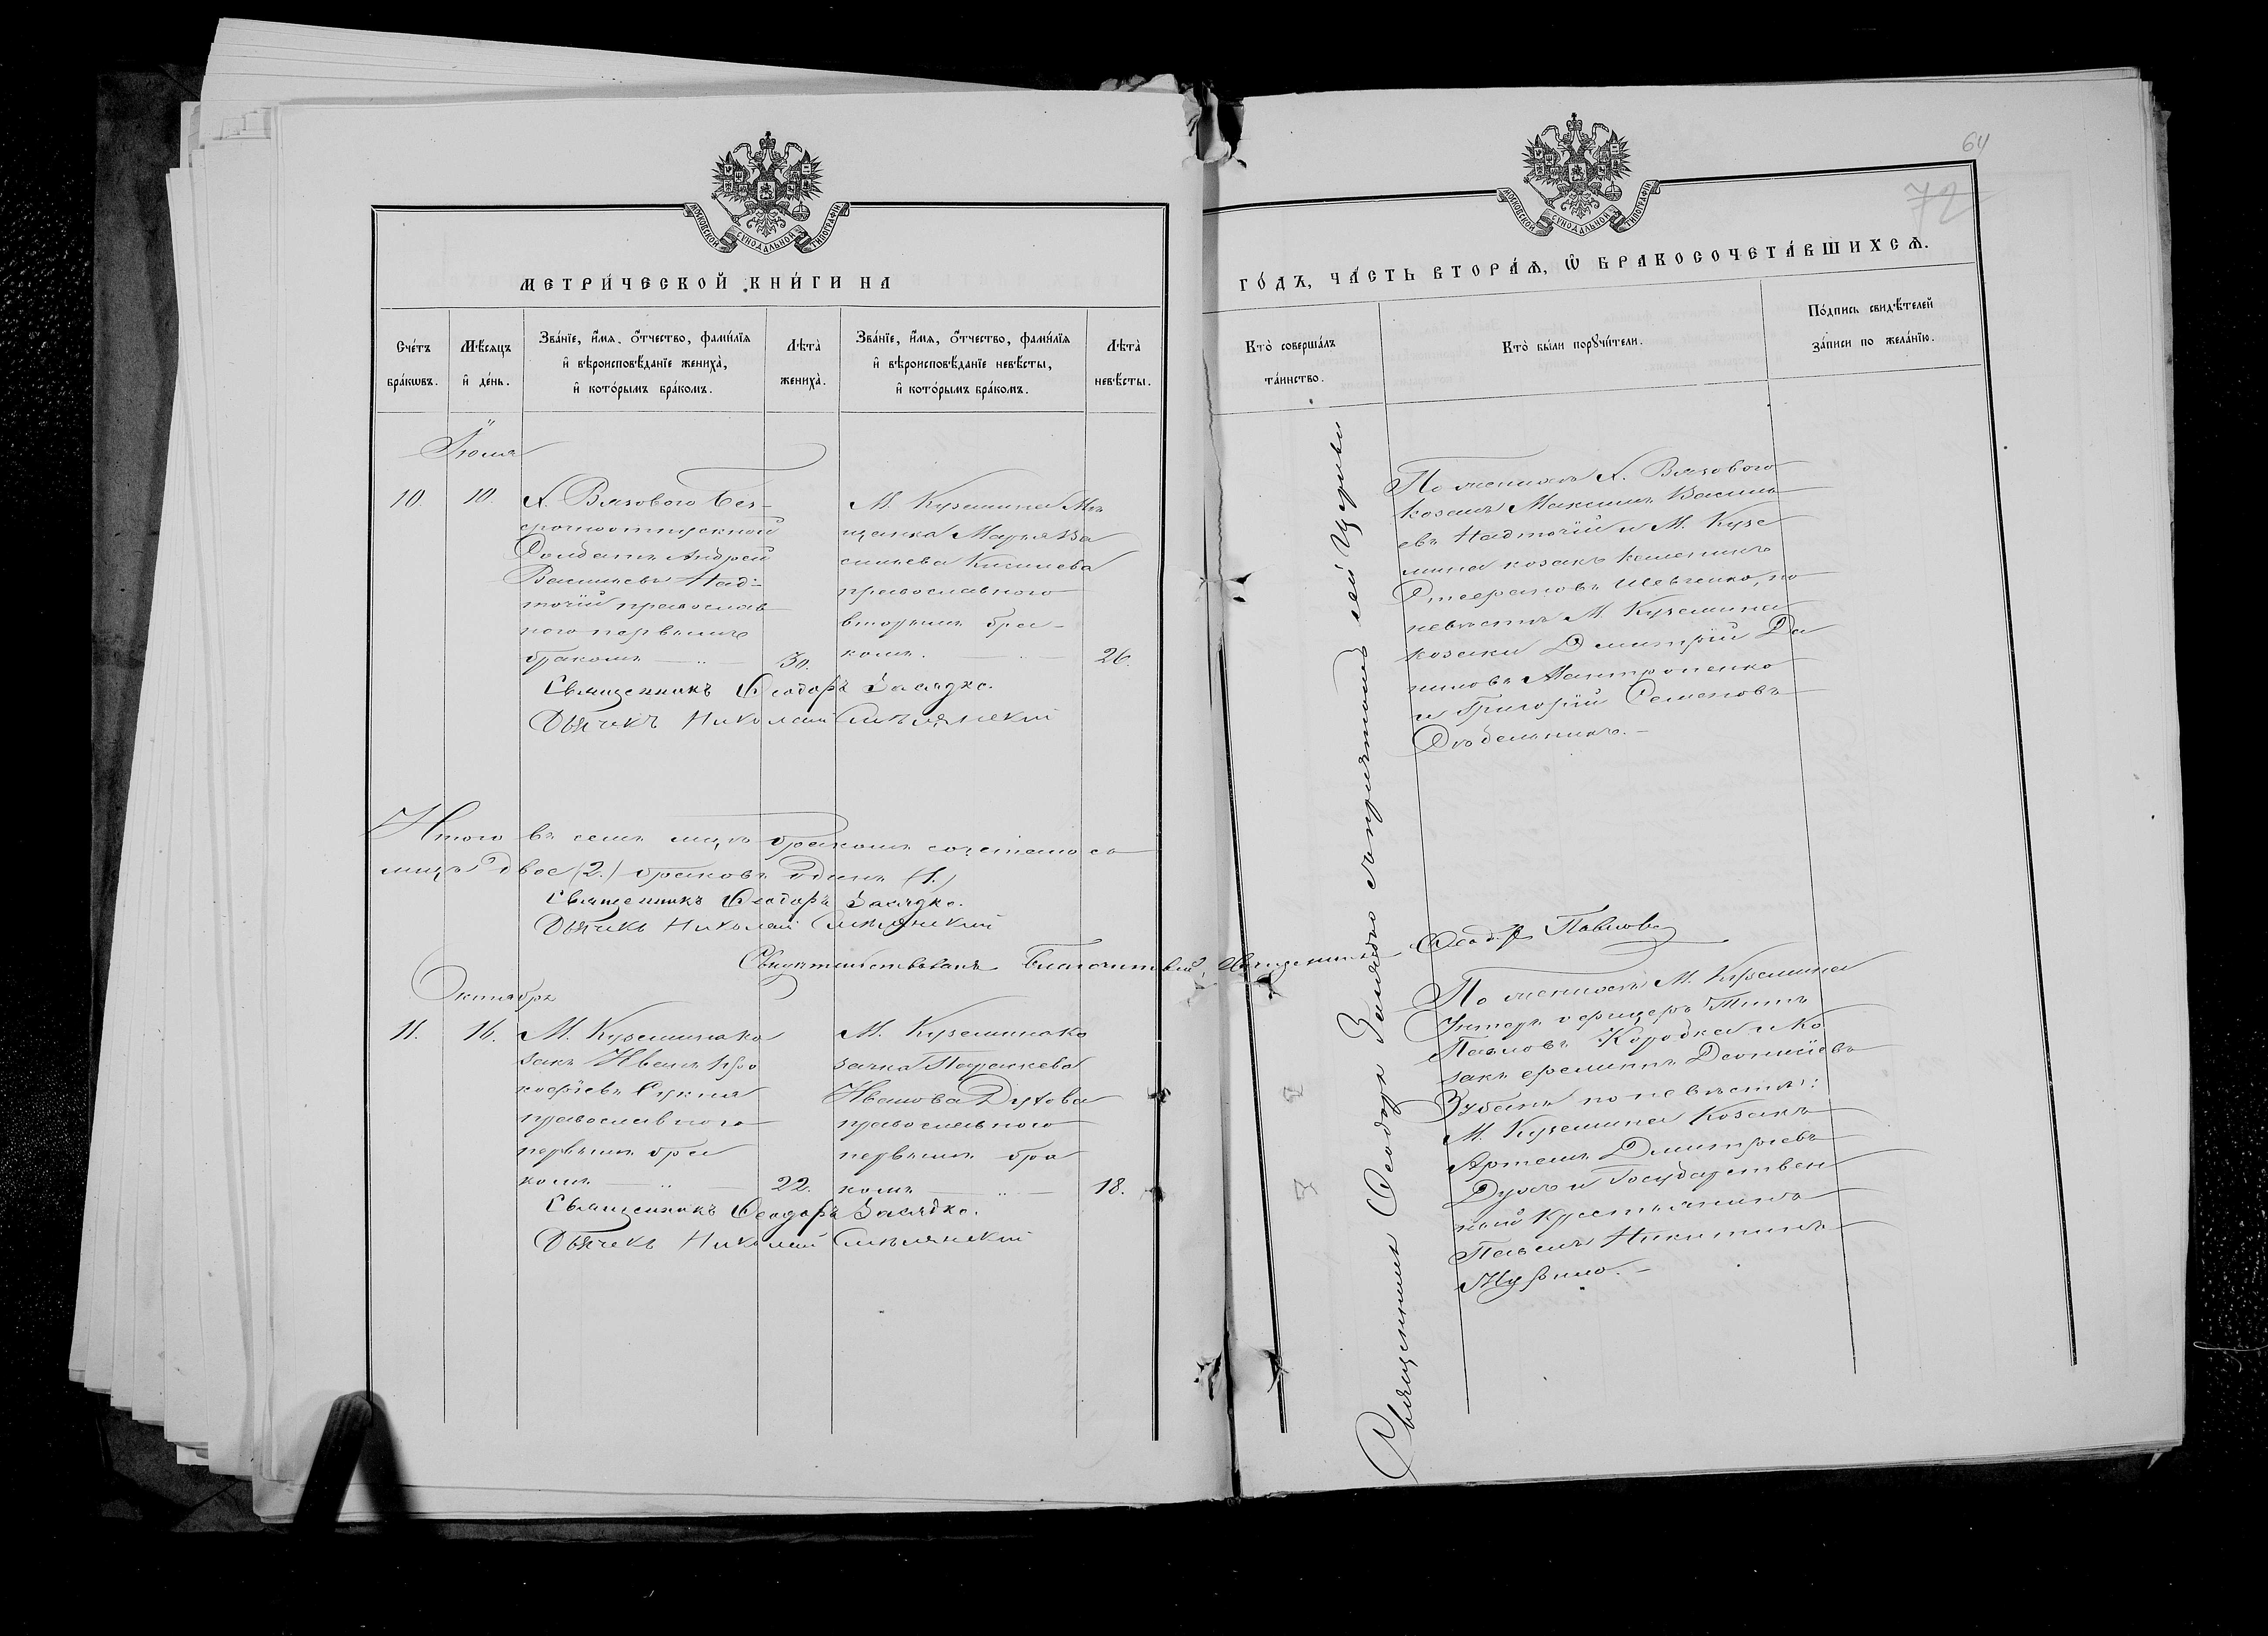 МОСКОВСКОЙ СѴНОДАЛЬНОЙ ТИПОГРАФІИ
МЕТРИ́ЧЕСКОЙ КНИ́ГИ НА
Сче́тъ бра́кѡвъ.
Мѣ́сяцъ и҆ де́нь.
Зва́нїе, и҆́мѧ, ѻ҆́тчество, фами́лїѧ
и҆ вѣроисповѣ́данїе жениха̀,
и҆ кото́рымъ бра́комъ.
Лѣта̀ жениха̀.
Зва́нїе, и҆́мѧ, ѻ҆́тчество, фами́лїѧ
и҆ вѣроисповѣ́данїе невѣ́сты,
и҆ кото́рымъ бра́комъ.
Лѣта̀ невѣ́сты.
Іюля
10.
10.
Х. Вязового Без-
срочноотпускной
Солдатъ Андрей
Васильевъ Над-
точій православ
ного первымъ
бракомъ
30.
М. Куземина Мѣ
щанка Марія Ва
сильева Киси­лева
православного
вторымъ бра-
комъ.
26.
Священникъ Ѳеодоръ Засядко.
Дьячекъ Николай Смѣлянскій
Итого въ семъ мцѣ бракомъ сочеталось
лицъ двое (2.) браковъ одинъ (1.)
Священникъ Ѳеодоръ Засядко.
Дьячекъ Николай Смѣлянскій
Свидѣтельствовалъ Благочинный, Священникъ Ѳеод. Павловъ
Октября
11.
16.
М. Куземина ко
закъ Иванъ Про
кофіевъ Сукня
православного
первымъ бра
комъ
22.
М. Куземина ко
зачка Параскева
Иванова Духова
православного
первымъ бра
комъ
18.
Священникъ Ѳеодоръ Засядко.
Дьячекъ Николай Смѣлянскій
64
72
МОСКОВСКОЙ СѴНОДАЛЬНОЙ ТИПОГРАФІИ
ГО́ДЪ, ЧА́СТЬ ВТОРА́Ѧ, Ѽ БРАКОСОЧЕТА́ВШИХСѦ.
Кто̀ соверша́лъ та́инство.
Кто̀ бы́ли порꙋчи́тели.
По́дпись свидѣ́телей за́писи по жела́нїю.
Священникъ Ѳеодоръ Засядко сей Церкви
По женихѣ Х. Вязового
козакъ Максимъ Василь
евъ Надточій и М. Кузе
мина козакъ
Стефановъ Шевченко, по
невѣстѣ М. Куземина
козаки Димитрій Да
ниловъ Митропенко
и Григорій Семеновъ
По женихѣ М. Куземина
Унтеръ офицеръ Титъ
Павловъ Коробка и ко
закъ Деонисіевъ
Зубань по невѣстѣ:
М. Куземина Козакъ
Артемъ Димитріевъ
Духъ и Государствен
ный Крестьянинъ
Павелъ Никитинъ